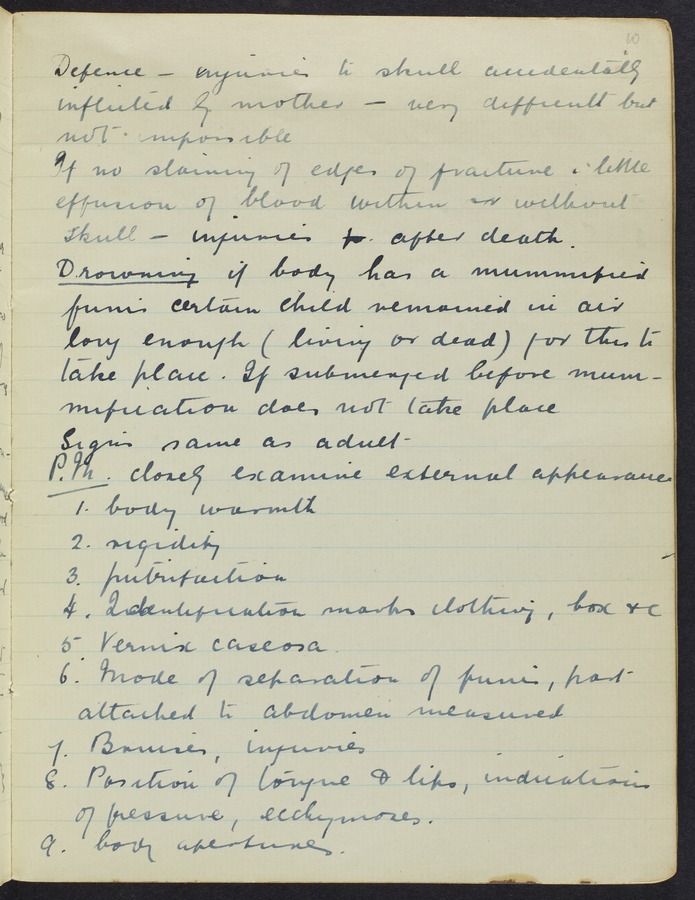 10
Defence – injuries to skull accidentally
inflicted by mother – very difficult but
not impossible
If no staining of edges of fracture & little
effusion of blood within or without
skull – injuries after death.
Drowning if body has a mummified
funis certain child remained in air
long enough (living or dead) for this to
take place. If submerged before mum-
mification does not take place
Signs same as adult
P.M. closely examine external appearance
1. body warmth
2. rigidity
3. putrifaction
4. Identification marks clothing, box &c
5 Vernix caseosa.
6. Mode of separation of funis, part
attached to abdomen measured
7. Bruises, injuries
8. Position of tongue & lips, indications
of pressure, ecchymoses.
9. body apertures.